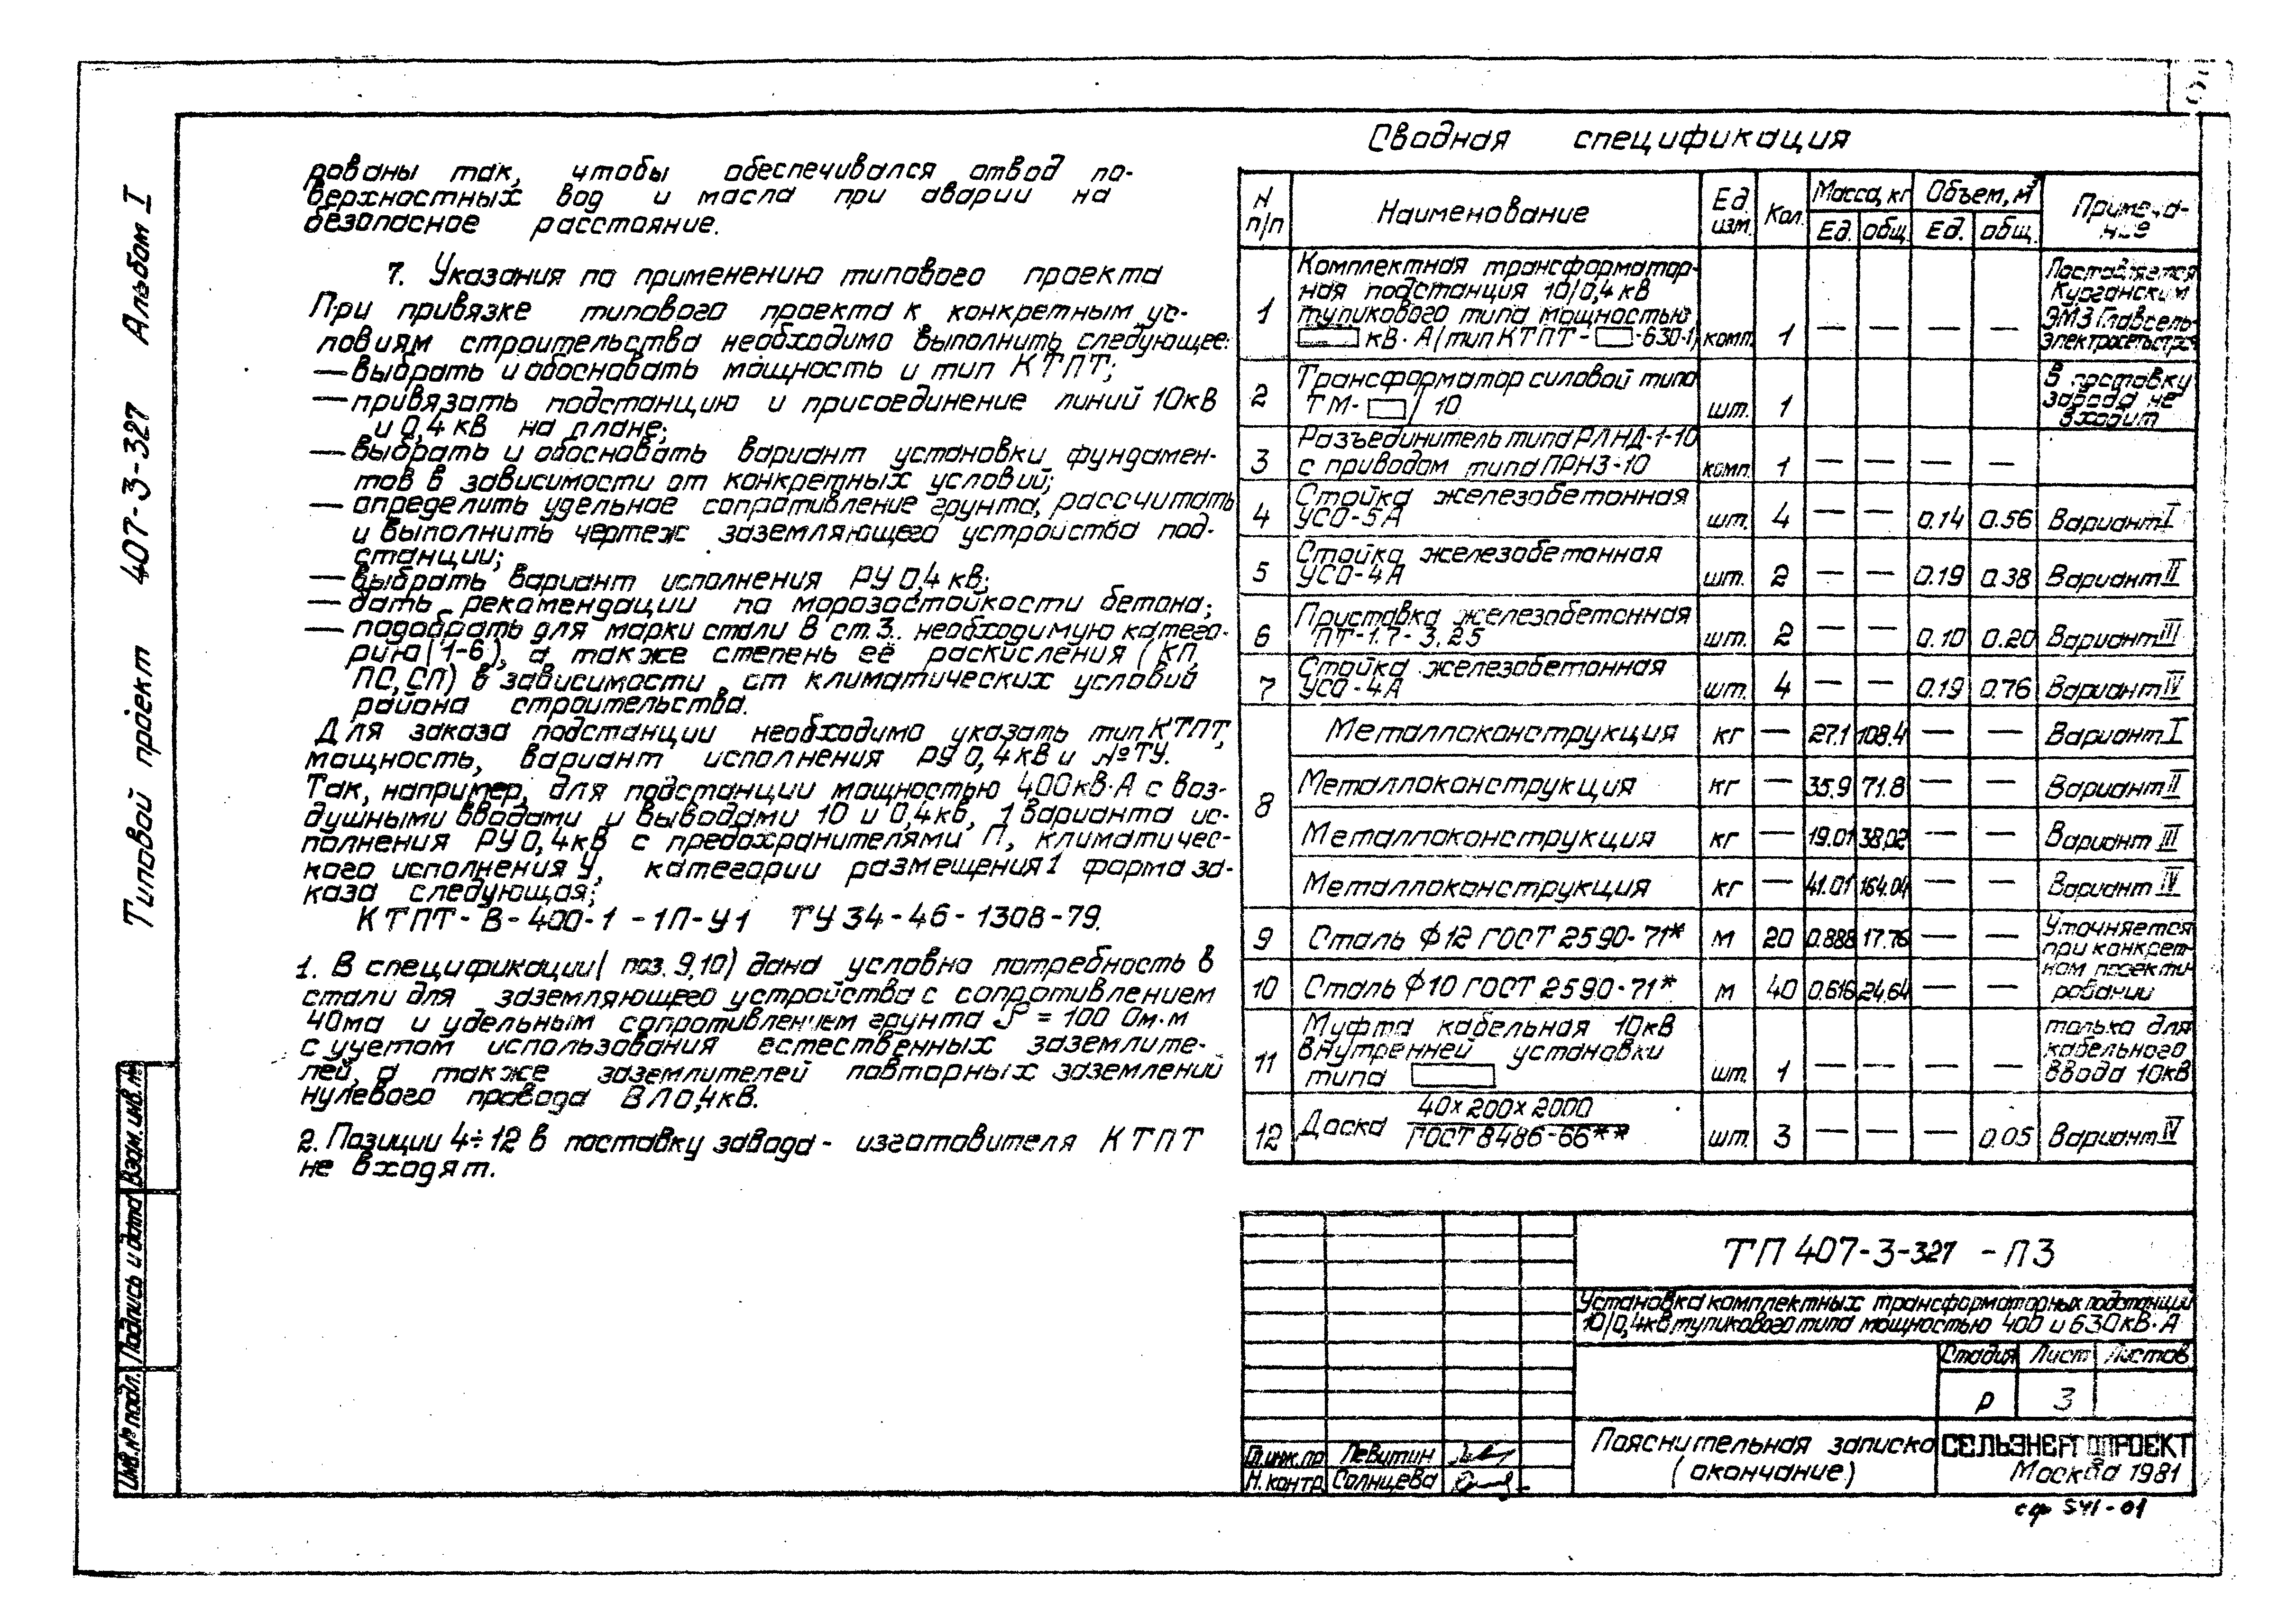 Типовой проект 407-3-327 Альбом I
рованы так, чтобы обеспечивался отвод по-
верхностных вод и масла при аварии на
безопасное расстояние.
7. Указания по применению типового проекта
При привязке типового проекта к конкретным ус-
ловиям строительства необходимо выполнить следующее:
— выбрать и обосновать мощность и тип КТПТ;
— привязать подстанцию и присоединение линий 10кВ
и 0,4 кВ на плане;
— выбрать и обосновать вариант установки фундамен-
тов в зависимости от конкретных условий;
— определить удельное сопротивление грунта, рассчитать
и выполнить чертеж заземляющего устройства под-
станции;
— выбрать вариант исполнения РУ 0,4 кВ;
— дать рекомендации по морозостойкости бетона;
— подобрать для марки стали В ст.3.. необходимую катего-
рию (1-6), а также степень её раскисления (КП,
ПС, СП) в зависимости от климатических условий
района строительства.
Для заказа подстанции необходимо указать тип КТПТ,
мощность, вариант исполнения РУ 0,4кВ и № ТУ.
Так, например, для подстанции мощностью 400кВ·А с воз-
душными вводами и выводами 10 и 0,4кВ, 1 варианта ис-
полнения РУ 0,4кВ с предохранителями П, климатичес-
кого исполнения У, категории размещения 1 форма за-
каза следующая:
КТПТ-В-400-1-1П-У1 ТУ 34-46-1308-79.
1. В спецификации (поз. 9,10) дана условно потребность в
стали для заземляющего устройства с сопротивлением
4Ома и удельным сопротивлением грунта ρ = 100 Ом·м
с учетом использования естественных заземлите-
лей, а также заземлителей повторных заземлений
нулевого провода ВЛ 0,4кВ.
2. Позиции 4÷12 в поставку завода-изготовителя КТПТ
не входят.
Сводная спецификация
N п/п Наименование Ед изм. Кол. Масса, кг Объем, м³ Примеча-
ние
Ед. общ. Ед. общ.
1 Комплектная трансформатор-
ная подстанция 10/0,4 кВ
тупикового типа мощностью
кВ·А (тип КТПТ- -630-1) комп. 1 — — — — Поставляется
Курганским
ЭМЗ Главсель-
электросетьстроя
2 Трансформатор силовой типа
ТМ- / 10 шт. 1 В поставку
завода не
входит
3 Разъединитель типа РЛНД-1-10
с приводом типа ПРНЗ-10 комп. 1 — — — —
4 Стойка железобетонная
УСО-5А шт. 4 — — 0.14 0.56 Вариант I
5 Стойка железобетонная
УСО-4А шт. 2 — — 0.19 0.38 Вариант II
6 Приставка железобетонная
ПТ-1.7-3.25 шт. 2 — — 0.10 0.20 Вариант III
7 Стойка железобетонная
УСО-4А шт. 4 — — 0.19 0.76 Вариант IV
8 Металлоконструкция кг — 27.1 108.4 — — Вариант I
Металлоконструкция кг — 35.9 71.8 — — Вариант II
Металлоконструкция кг — 19.01 38.02 — — Вариант III
Металлоконструкция кг — 41.01 164.04 — — Вариант IV
9 Сталь Ф12 ГОСТ 2590-71* м 20 0.888 17.76 — — Уточняется
при конкрет-
10 Сталь Ф10 ГОСТ 2590-71* м 40 0.616 24.64 — — ном проекти-
ровании
11 Муфта кабельная 10кВ
внутренней установки
типа шт. 1 — — — — только для
кабельного
ввода 10кВ
12 Доска 40×200×2000
ГОСТ 8486-66** шт. 3 — — — 0.05 Вариант IV
ТП 407-3-327 -ПЗ
Установка комплектных трансформаторных подстанций
10/0,4кВ тупикового типа мощностью 400 и 630кВ·А
Стадия Лист Листов
Р 3
Гл.инж.пр Левитин
Н.контр. Солнцева
Пояснительная записка
(окончание)
СЕЛЬЭНЕРГОПРОЕКТ
Москва 1981
сф 541-01
Инв.№ подл. Подпись и дата Взам.инв.№